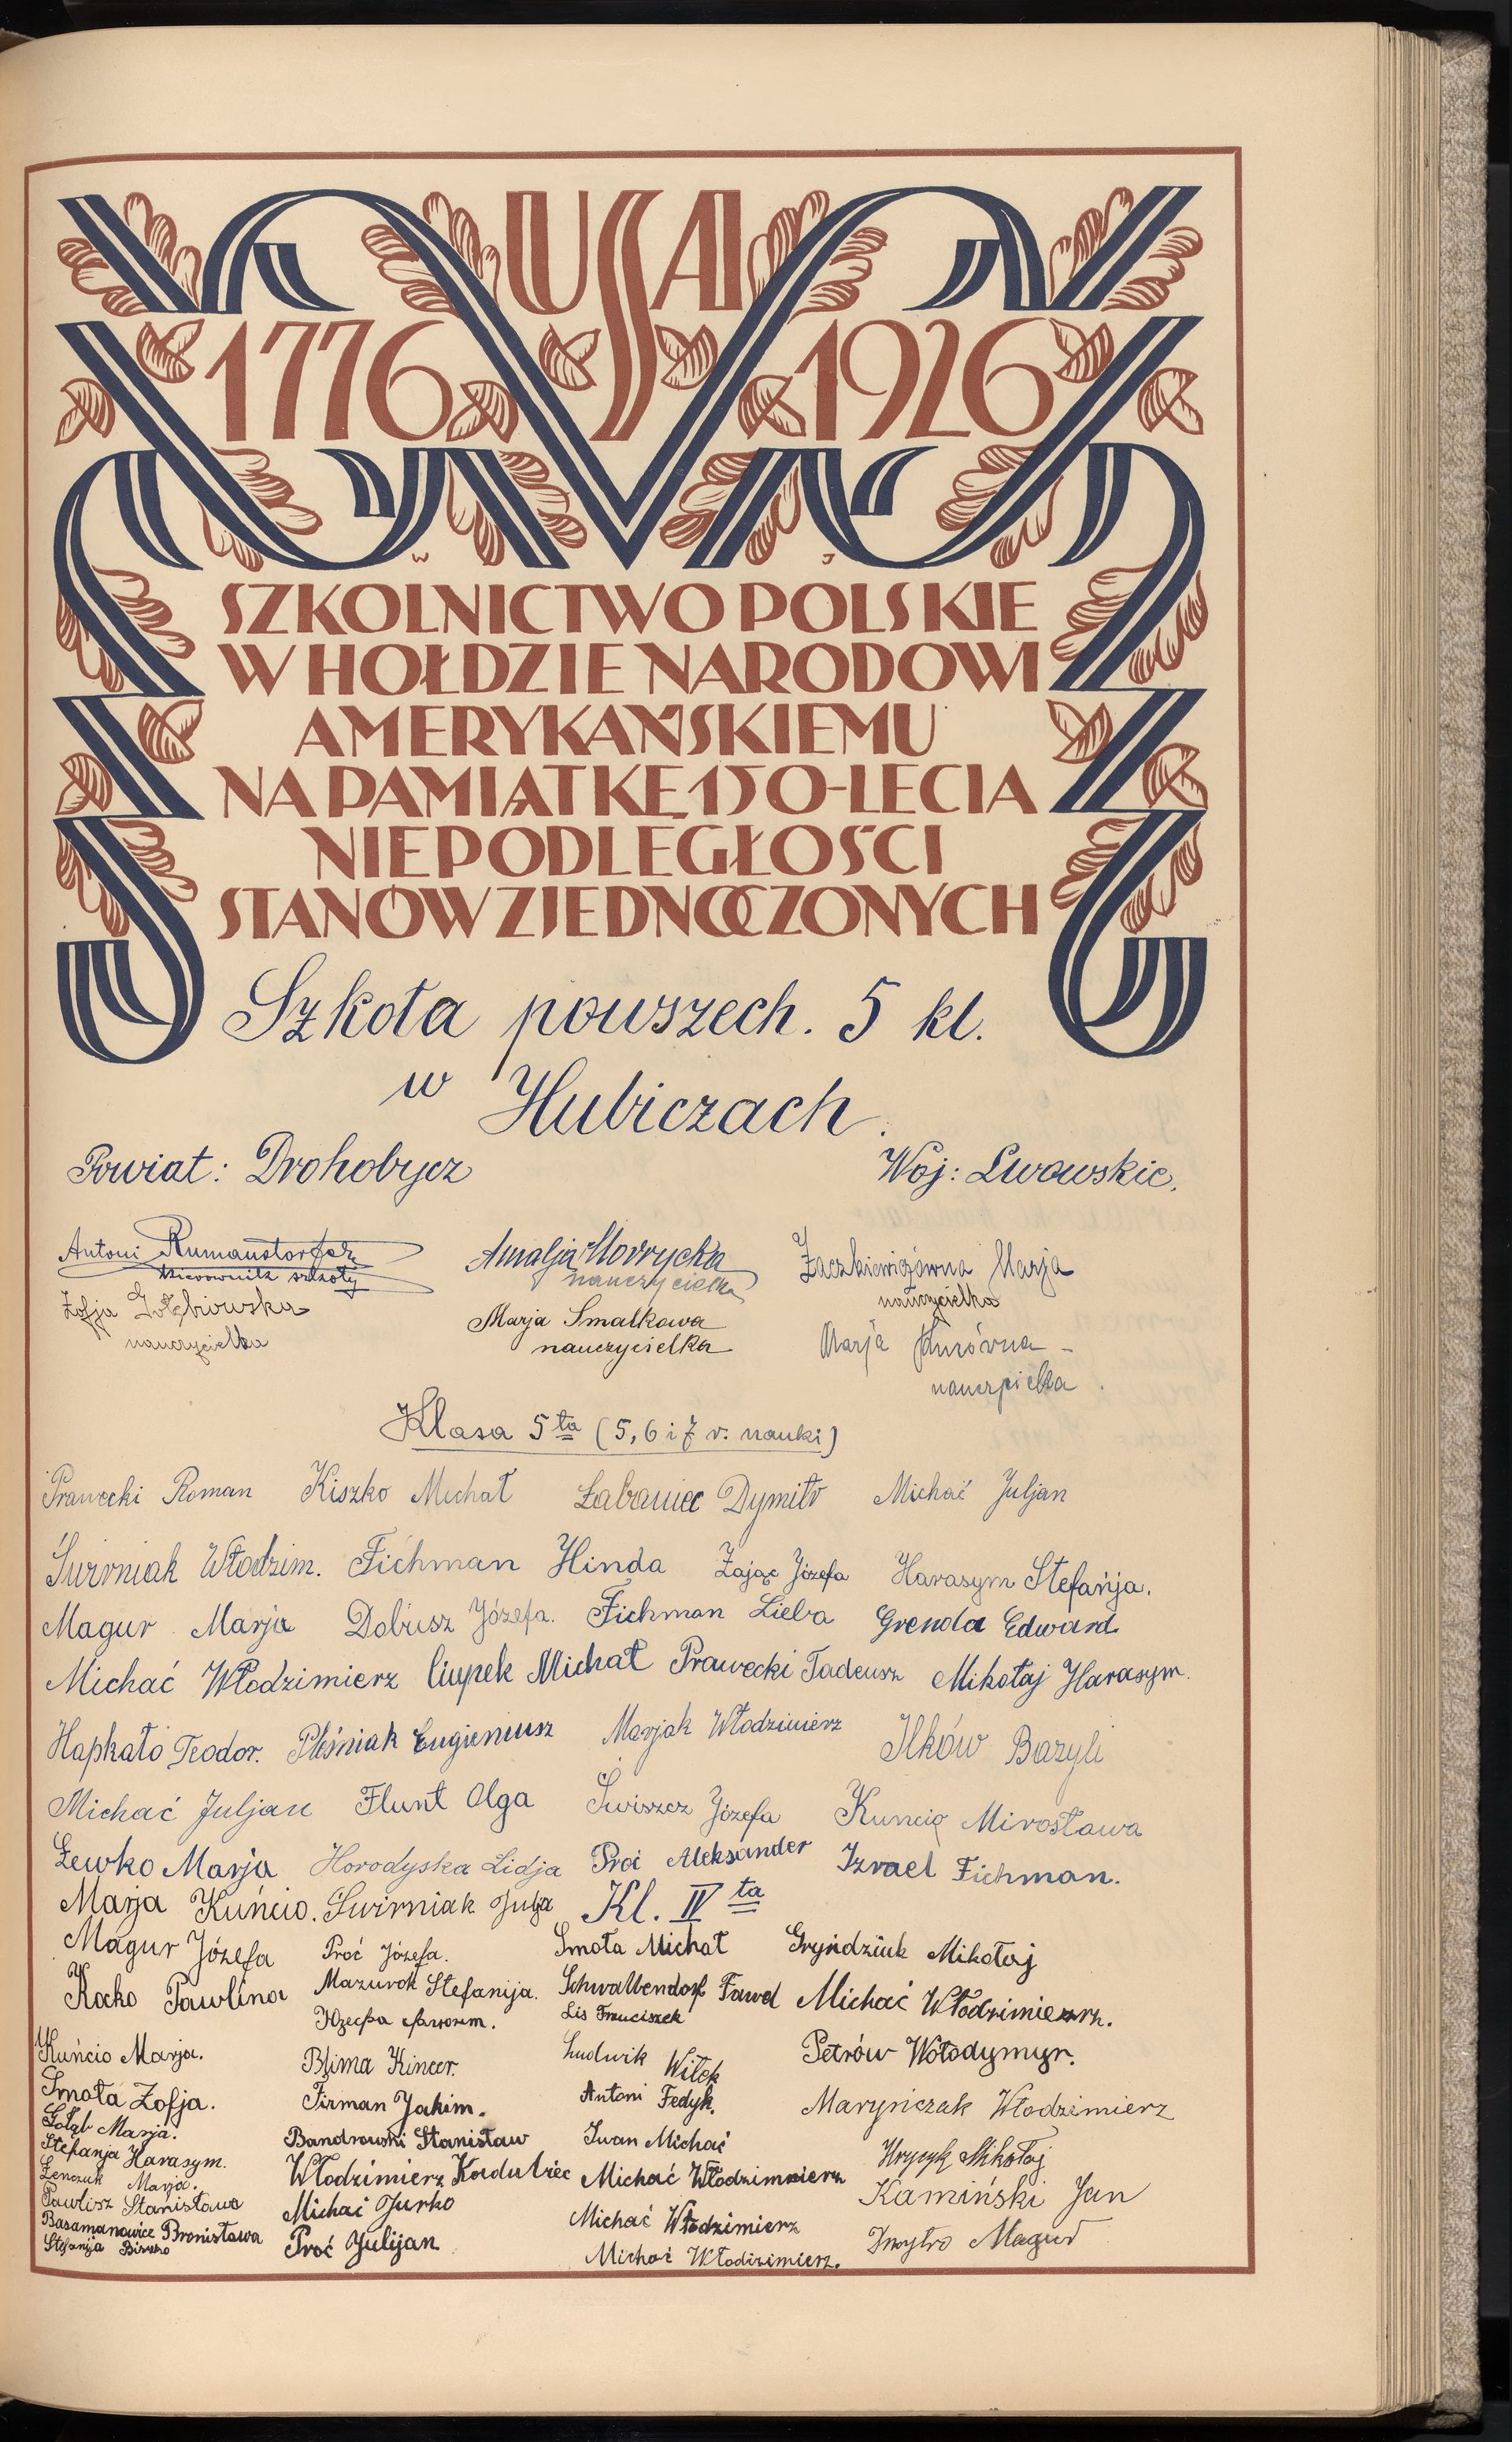 USA
1776 1926
W J
SZKOLNICTWO POLSKIE
W HOŁDZIE NARODOWI
AMERYKAŃSKIEMU
NA PAMIĄTKĘ 150-LECIA
NIEPODLEGŁOŚCI
STANÓW ZJEDNOCZONYCH
Szkoła powszech. 5 kl.
w Hubiczach.
Powiat: Drohobycz Woj: Lwowskie.
Antoni Amalja Żaczkiewiczówna Marja
kierownik szkoły nauczycielka nauczycielka
Zofja Gołębiowska Marja Smalkowa Marja
nauczycielka nauczycielka nauczycielka
Klasa 5ta (5, 6 i 7 r. nauki)
Prawecki Roman Kiszko Michał Łabaniec Dymitr Michać Juljan
Świrniak Włodzim. Fichman Hinda Zając Józefa Harasym Stefanja.
Magur Marja Dobusz Józefa. Fichman Lieba Grenda Edward
Michać Włodzimierz Ciupek Michał Prawecki Tadeusz Mikołaj Harasym.
Hapkało Teodor. Pleśniak Eugieniusz Marjak Włodzimierz Ilków Bazyli
Michać Juljan Flunt Olga Świszcz Józefa Kuncio Mirosława
Lewko Marja Horodyska Lidja Proć Aleksander Izrael Fichman.
Marja Kuńcio. Świrniak Julja Kl. IV ta
Magur Józefa Proć Józefa. Smoła Michał Gryńdziuk Mikołaj
Kocko Pawlina Mazurok Stefanija. Schwalbendorf Fawel Michać Włodzimierz.
Юзефа Lis Franciszek
Kuńcio Marja. Blima Kincer. Ludwik Witek Petrów Wołodymyr.
Smoła Zofja. Firman Jakim. Antoni Fedyk. Maryńczak Włodzimierz
Gołąb Marja. Bandrowski Stanisław Iwan Michać Hrycyk Mikołaj
Stefanja Harasym. Włodzimierz Michać Włodzimierz Kamiński Jan
Marja. Michać Jurko Michać Włodzimierz Dmytro Magur
Pawlisz Stanisława Proć Julijan Michać Włodzimierz.
Basamanowicz Bronisława
Stefanija